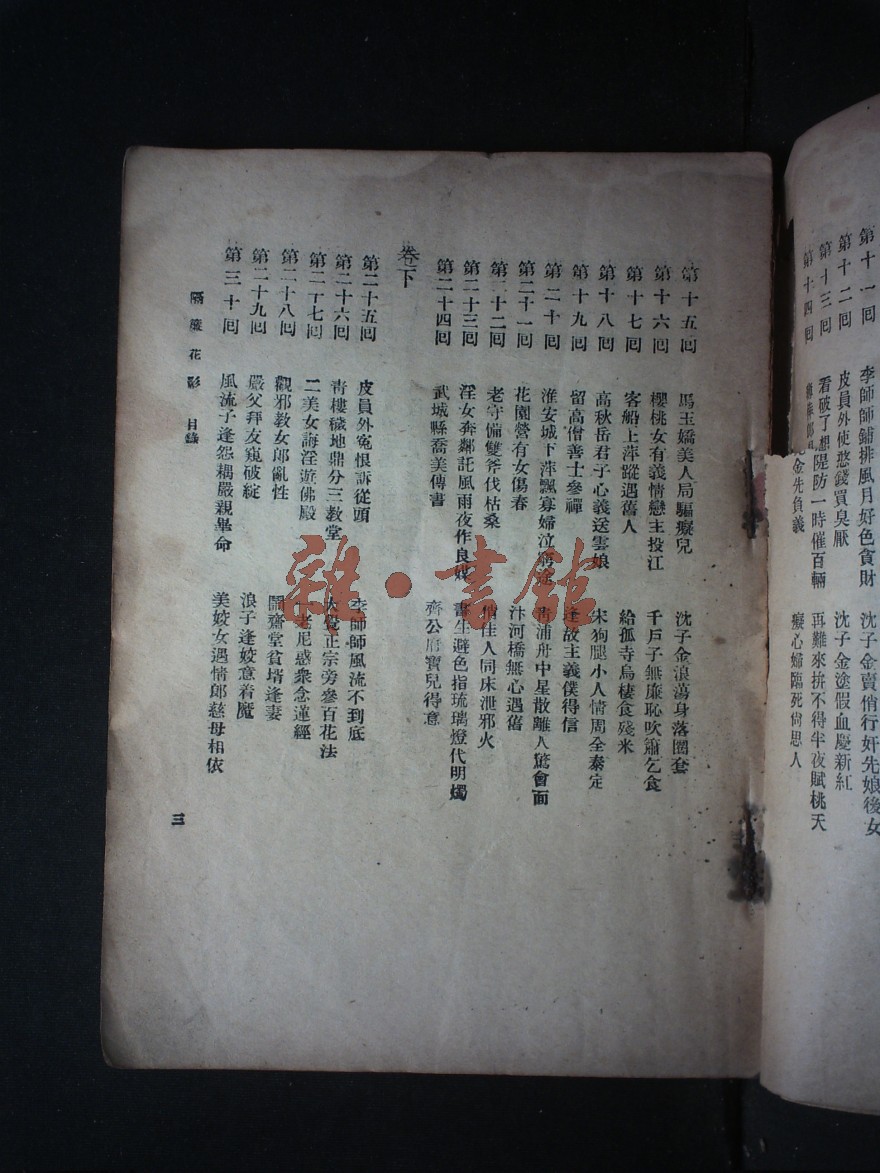 第十一囘 李師師鋪排風月好色貪財 沈子金賣俏行奸先娘後女
第十二囘 皮員外使憨錢買臭厭 沈子金塗假血慶新紅
第十三囘 看破了想隄防一時催百輛 再難來拚不得半夜賦桃夭
第十四囘 金先負義 癡心婦臨死尙思人
第十五囘 馬玉嬌美人局騙癡兒 沈子金浪蕩身落圈套
第十六囘 櫻桃女有義情戀主投江 千戶子無廉恥吹簫乞食
第十七囘 客船上萍蹤遇舊人 給孤寺烏棲食殘米
第十八囘 高秋岳君子心義送雲娘 宋狗腿小人情周全泰定
第十九囘 留高僧善士參禪 逢故主義僕得信
第二十囘 淮安城下萍飄寡婦泣窮途 靑浦舟中星散離人驚會面
第二十一囘 花園營有女傷春 汴河橋無心遇舊
第二十二囘 老守備雙斧伐枯桑 俏佳人同床泄邪火
第二十三囘 淫女奔鄰託風雨夜作良媒 書生避色指琉璃燈代明燭
第二十四囘 武城縣喬美傳書 齊公府寶兒得意
卷下
第二十五囘 皮員外寃恨訴從頭 李師師風流不到底
第二十六囘 靑樓穢地鼎分三教堂 大覺正宗旁參百花法
第二十七囘 二美女誨淫遊佛殿 老尼惑衆念蓮經
第二十八囘 觀邪教女郎亂性 鬧齋堂貧壻逢妻
第二十九囘 嚴父拜友窺破綻 浪子逢姣意着魔
第三十囘 風流子逢怨耦嚴親畢命 美姣女遇情郎慈母相依
隔簾花影 目錄
三
雜·書館